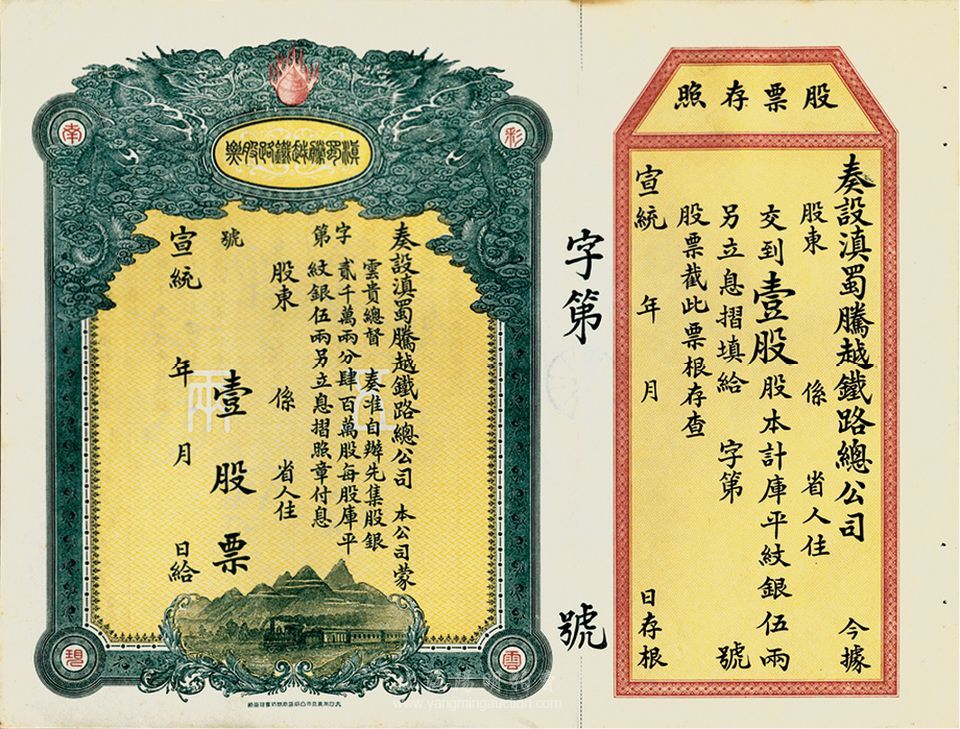 股票存照
奏設滇蜀騰越鐵路總公司 今據
股東 係 省人住
交到壹股股本計庫平紋銀伍兩
另立息摺填給 字第 號
股票截此票根存查
宣統 年 月 日存根
字第 號
滇蜀騰越鐵路股票
彩
雲
南
現
奏設滇蜀騰越鐵路總公司 本公司蒙
雲貴總督 奏准自辦先集股銀
貳千萬兩分肆百萬股每股庫平
紋銀伍兩另立息摺照章付息
字第 號
股東 係 省人住
壹股票
宣統 年 月 日給
伍兩
www.yangmingauction.com